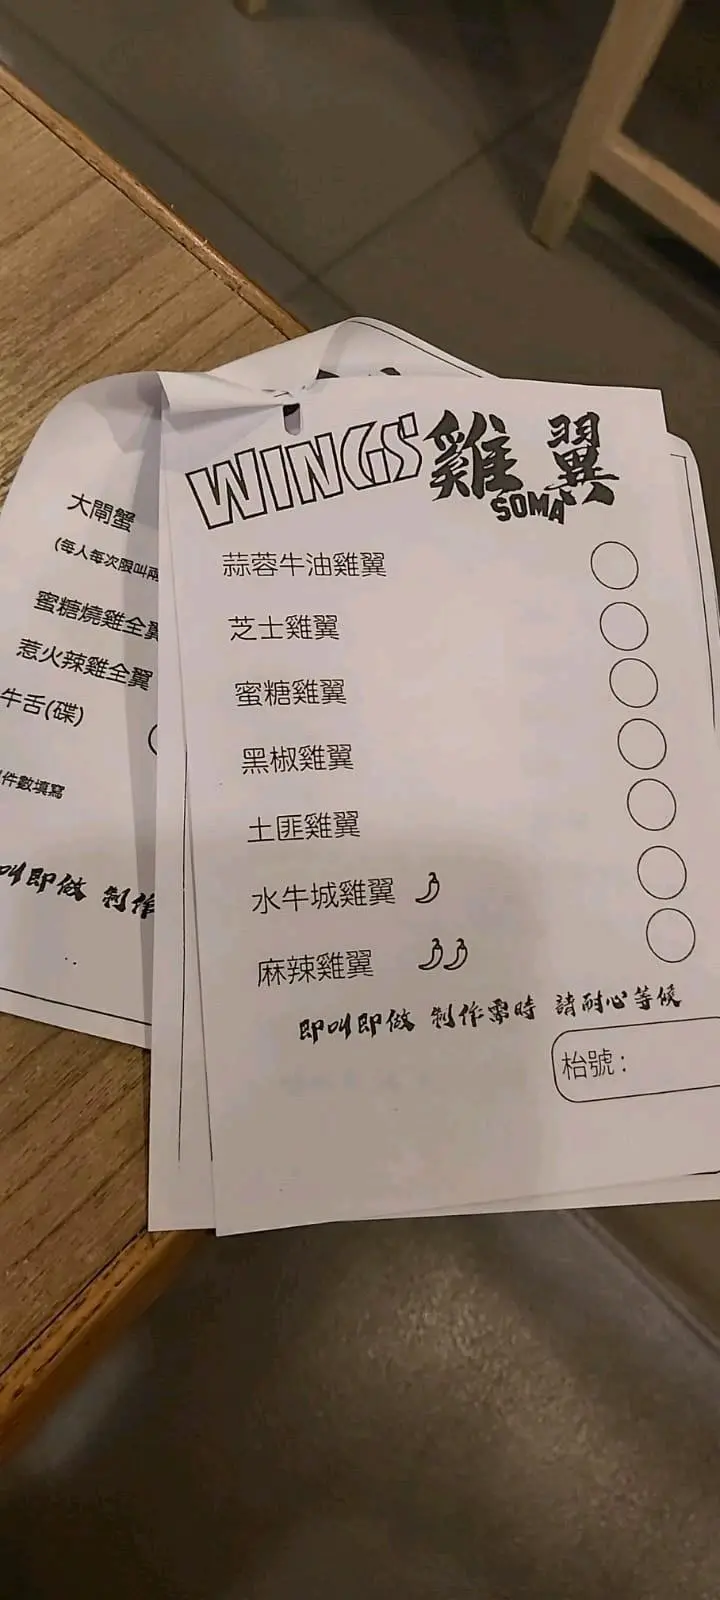 WINGS 雞翼
SOMA
蒜蓉牛油雞翼
芝士雞翼
蜜糖雞翼
黑椒雞翼
土匪雞翼
水牛城雞翼
麻辣雞翼
即叫即做 制作需時 請耐心等候
枱號:
大閘蟹
(每人每次限叫兩
蜜糖燒雞全翼
惹火辣雞全翼
牛舌(碟)
件數填寫
叫即做 制作